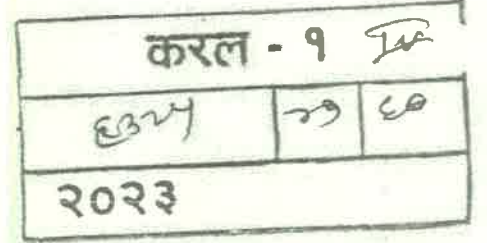 करल - १
६३२५ २७ ६०
२०२३